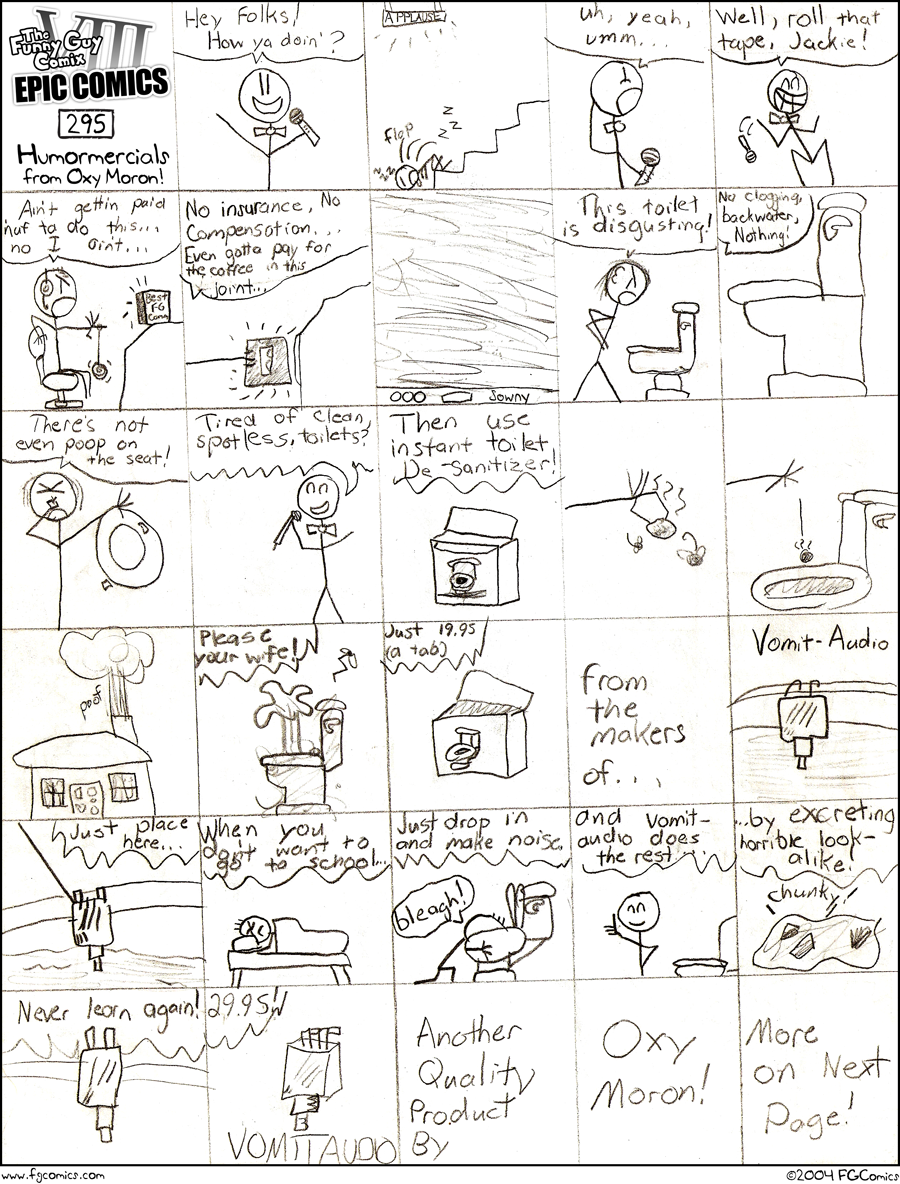 The
Funny Guy
Comix
VIII
EPIC COMICS
295
Humormercials
from Oxy Moron!
Hey Folks!
How ya doin'?
APPLAUSE
z
z
z
z
flop
uh, yeah,
umm...
Well, roll that
tape, Jackie!
Ain't gettin paid
nuf ta do this...
no I ain't...
Best
FG
Comx
No insurance, No
Compensation...
Even gotta pay for
the coffee in this
joint...
Jowny
This toilet
is disgusting!
No cloging,
backwater,
Nothing!
There's not
even poop on
the seat!
Tired of clean,
spotless, toilets?
Then use
instant toilet
De-Sanitizer!
poof
Please
your wife!
Just 19.95
(a tab)
From
the
makers
of...
Vomit-Audio
Just place
here...
When you
don't want to
go to school...
Just drop in
and make noise,
bleagh!
and vomit-
audio does
the rest...
...by excreting
horrible look-
alike!
chunky!
Never learn again!
29.95!
VOMITAUDIO
Another
Quality
Product
By
Oxy
Moron!
More
on Next
Page!
www.fgcomics.com
©2004 FGComics